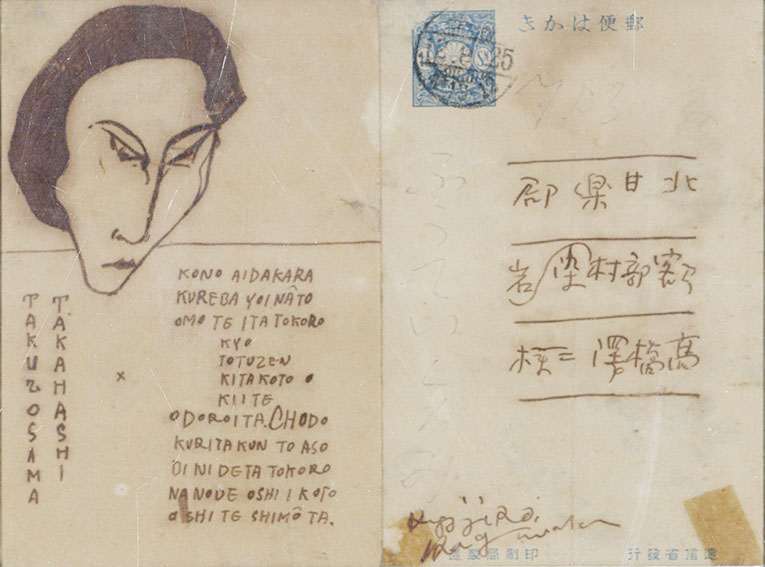 TAKAHASHI
TAKUZOSAMA
×
KONO AIDAKARA
KUREBA YOI NÂTO
OMO TE ITA TOKORO
KYO
TOTUZEN
KITA KOTO O
KIITE
ODOROITA. CHODO
KURITA KUN TO ASO
BI NI DETA TOKORO
NANODE OSHII KOTO
OSHITE SHIMÔTA.
郵便はかき
北甘楽郡
額部村染岩
高橋澤二様
遞信省發行 印刷局製造